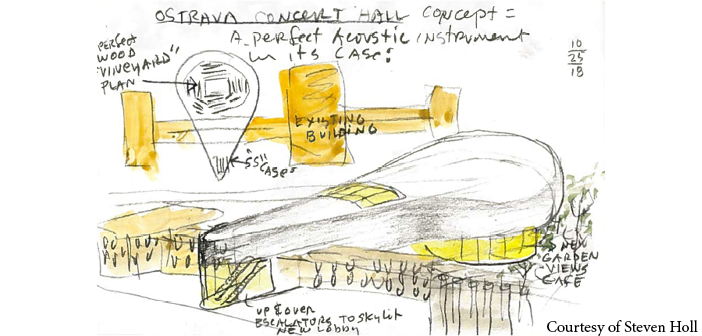 OSTRAVA CONCERT HALL CONCEPT =
A PERFECT ACOUSTIC INSTRUMENT
IN ITS CASE:
10
25
18
PERFECT
WOOD
"VINEYARD"
PLAN
EXISTING
BUILDING
"SS"
CASE:
NEW
GARDEN
-VIEWS
CAFE
UP & OVER
ESCALATORS TO SKYLIT
NEW LOBBY
Courtesy of Steven Holl